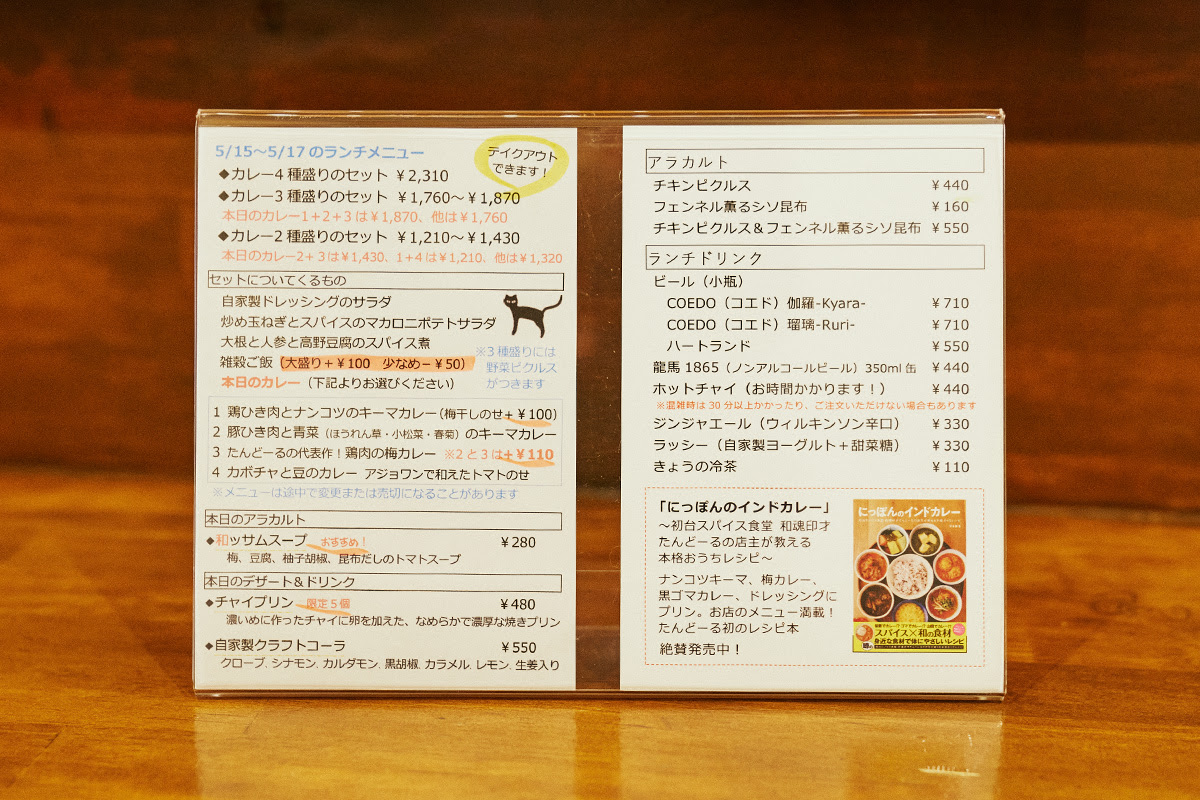 5/15～5/17のランチメニュー
テイクアウト
できます！
◆カレー4種盛りのセット ￥2,310
◆カレー3種盛りのセット ￥1,760～￥1,870
本日のカレー1+2+3は￥1,870、他は￥1,760
◆カレー2種盛りのセット ￥1,210～￥1,430
本日のカレー2+3は￥1,430、1+4は￥1,210、他は￥1,320
セットについてくるもの
自家製ドレッシングのサラダ
炒め玉ねぎとスパイスのマカロニポテトサラダ
大根と人参と高野豆腐のスパイス煮
雑穀ご飯（大盛り＋￥100 少なめ－￥50）
本日のカレー（下記よりお選びください）
※3種盛りには
野菜ピクルス
がつきます
1 鶏ひき肉とナンコツのキーマカレー（梅干しのせ+￥100）
2 豚ひき肉と青菜（ほうれん草・小松菜・春菊）のキーマカレー
3 たんどーるの代表作！鶏肉の梅カレー ※2と3は+￥110
4 カボチャと豆のカレー アジョワンで和えたトマトのせ
※メニューは途中で変更または売切になることがあります
本日のアラカルト
◆和ッサムスープ おすすめ！ ￥280
梅、豆腐、柚子胡椒、昆布だしのトマトスープ
本日のデザート＆ドリンク
◆チャイプリン 限定5個 ￥480
濃いめに作ったチャイに卵を加えた、なめらかで濃厚な焼きプリン
◆自家製クラフトコーラ ￥550
クローブ、シナモン、カルダモン、黒胡椒、カラメル、レモン、生姜入り
アラカルト
チキンピクルス ￥440
フェンネル薫るシソ昆布 ￥160
チキンピクルス＆フェンネル薫るシソ昆布 ￥550
ランチドリンク
ビール（小瓶）
COEDO（コエド）伽羅-Kyara- ￥710
COEDO（コエド）瑠璃-Ruri- ￥710
ハートランド ￥550
龍馬1865（ノンアルコールビール）350ml缶 ￥440
ホットチャイ（お時間かかります！） ￥440
※混雑時は30分以上かかったり、ご注文いただけない場合もあります
ジンジャエール（ウィルキンソン辛口） ￥330
ラッシー（自家製ヨーグルト＋甜菜糖） ￥330
きょうの冷茶 ￥110
「にっぽんのインドカレー」
～初台スパイス食堂 和魂印才
たんどーるの店主が教える
本格おうちレシピ～
ナンコツキーマ、梅カレー、
黒ゴマカレー、ドレッシングに
プリン。お店のメニュー満載！
たんどーる初のレシピ本
絶賛発売中！
にっぽんのインドカレー
スパイス×和の食材
身近な食材で体にやさしいレシピ